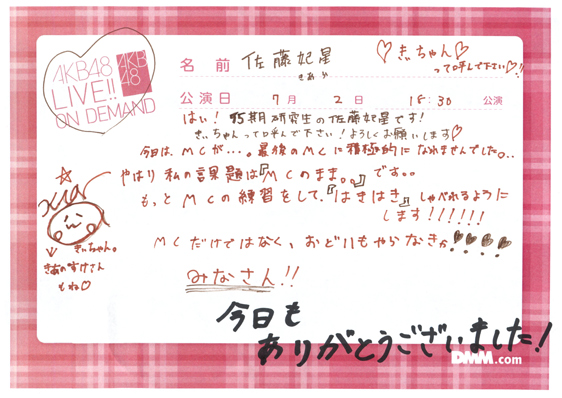 AKB48
LIVE!!
ON DEMAND
AKB
48
名前 佐藤妃星
きあり
♡きぃちゃん♡
って呼んで下さい♡!!
公演日 7月 2日 18:30 公演
はい! 15期研究生の佐藤妃星です!
きぃちゃんって呼んで下さい!よろしくお願いします♡
今日は、MCが…。最後のMCに積極的になれませんでした。
やはり私の課題は『MCのまま。』です。。
もっとMCの練習をして、『はきはき』しゃべれるように
します!!!!!!
MCだけではなく、おどりもやらなきゃ
みなさん!!
きぃちゃん。
きあのすけさん
もね♡
今日も
ありがとうございました!
DMM.com